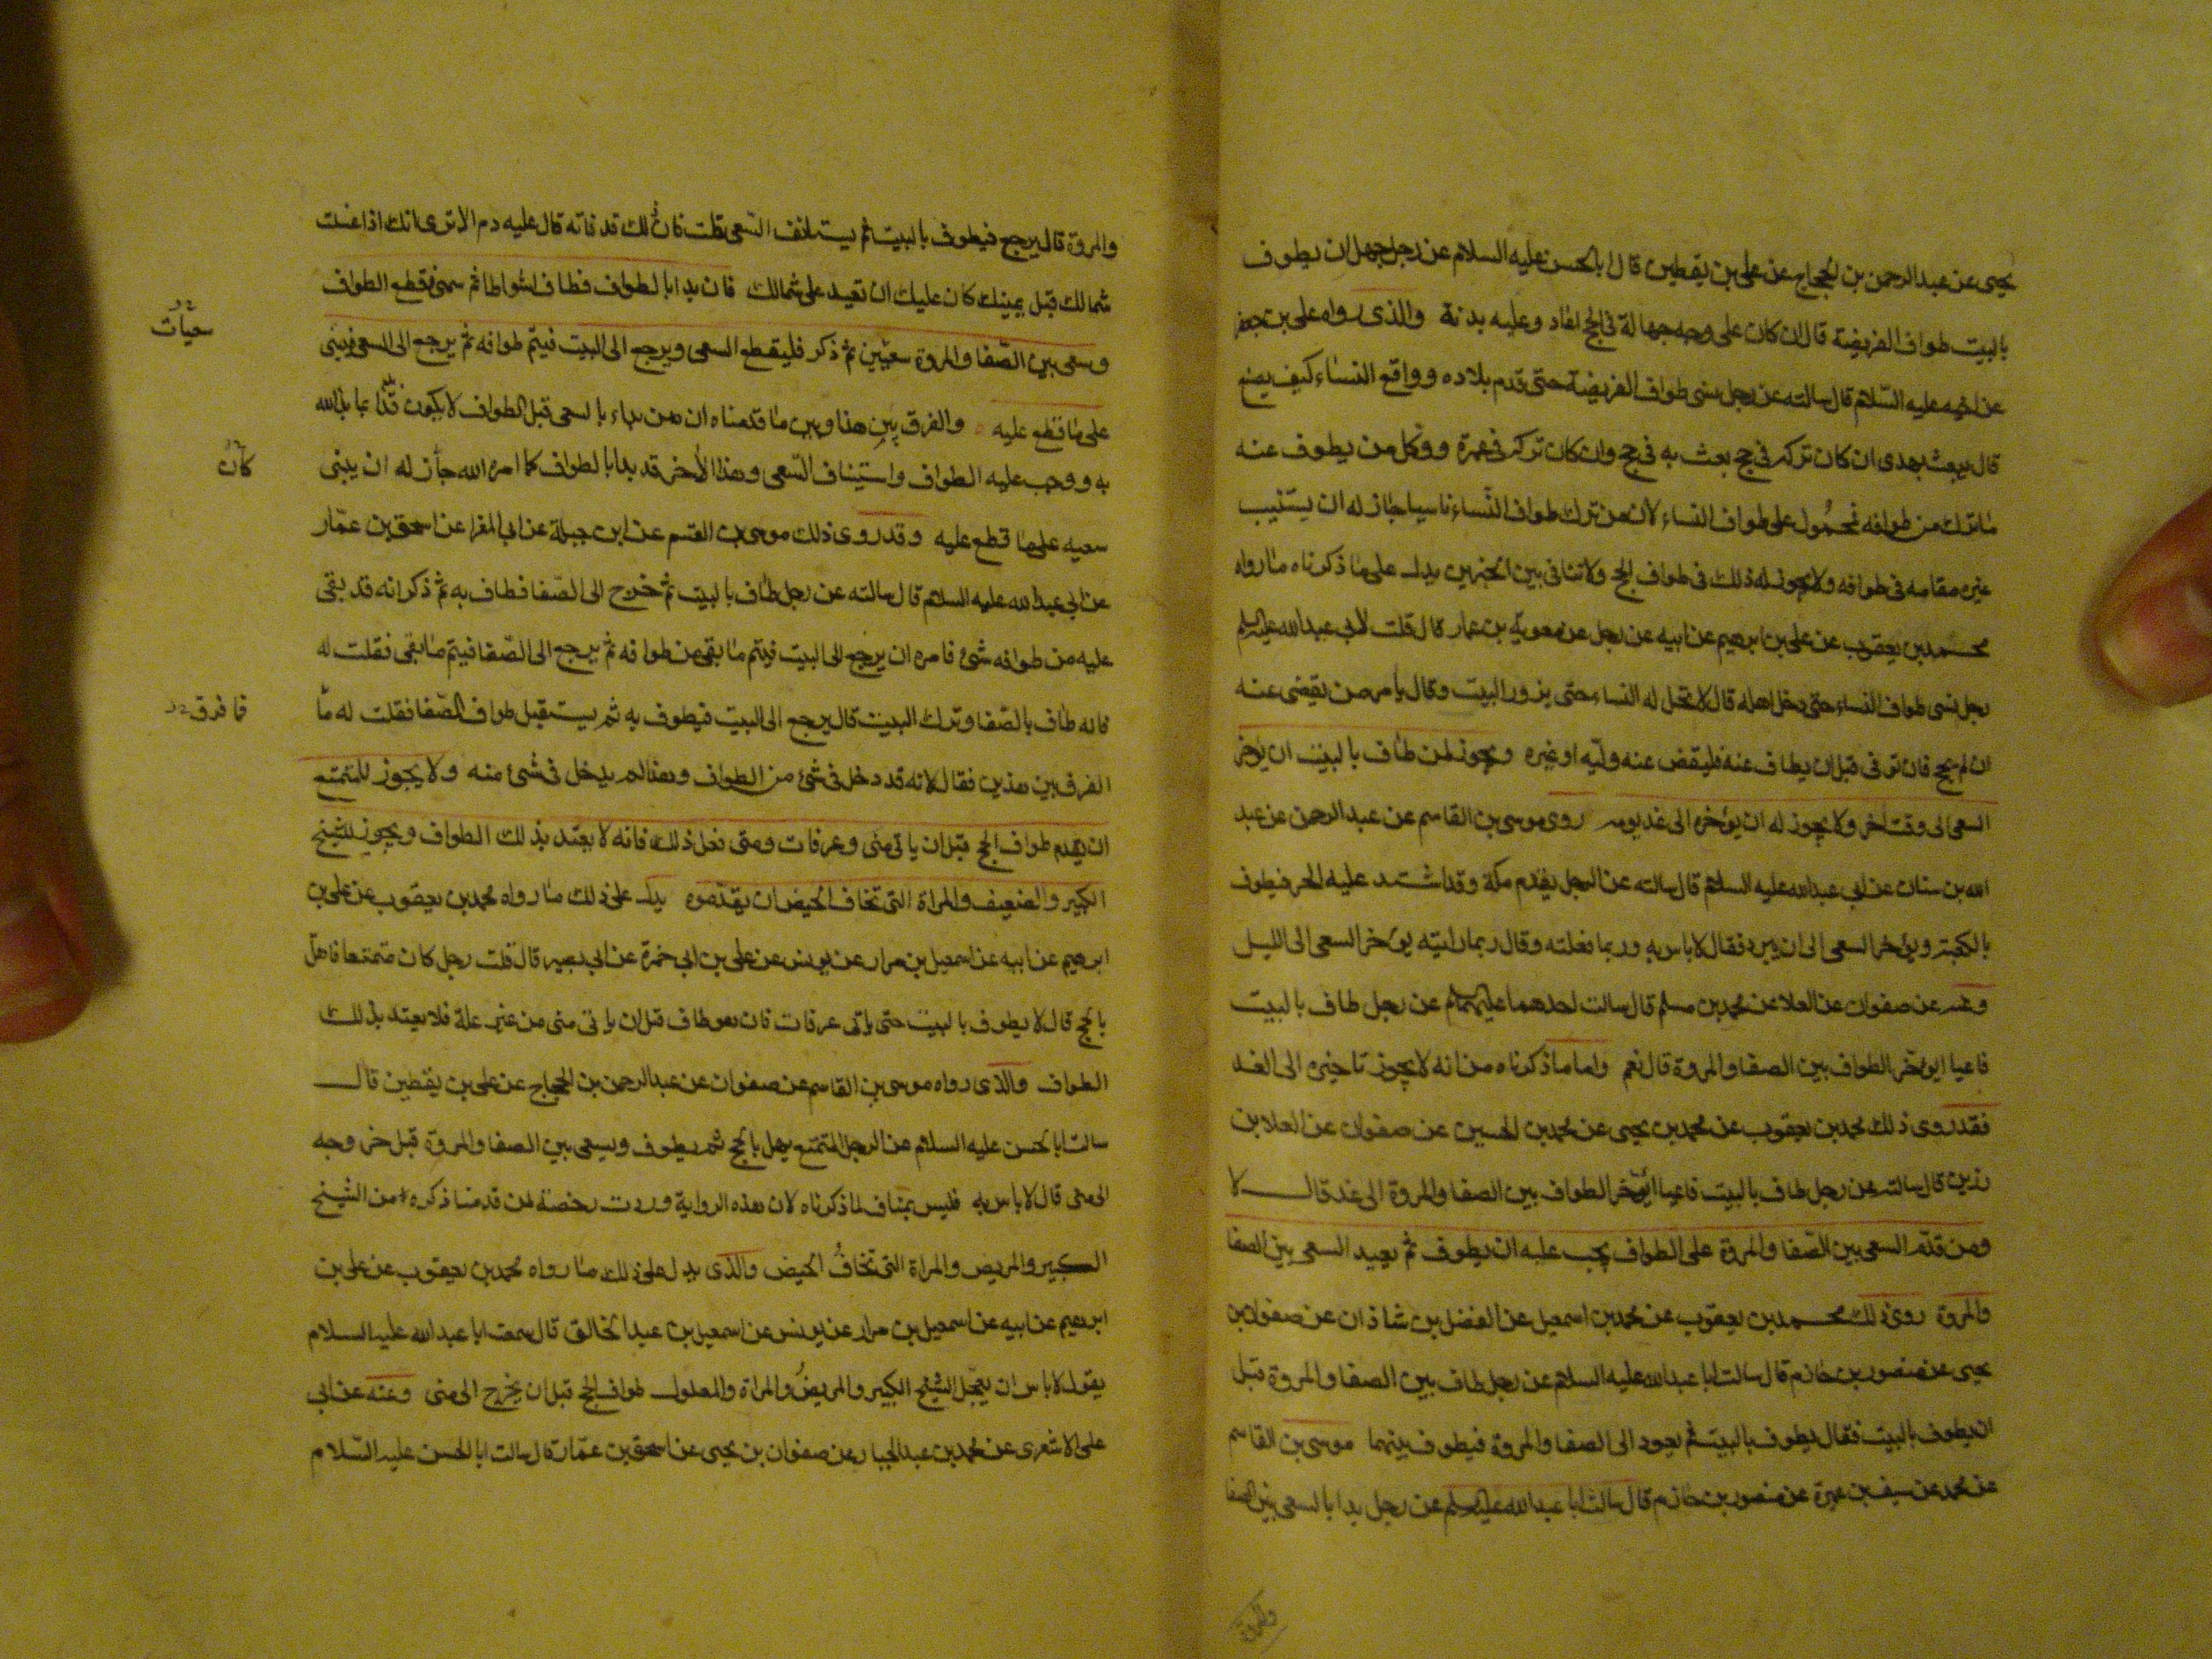 يحيى عن عبد الرحمن بن الحجاج عن على بن يقطين قال ابا الحسن عليه السلام عن رجل جهل ان يطوف
بالبيت طواف الفريضة قال ان كان على وجه جهالة فى الحج اعاد وعليه بدنة والذى رواه على بن جعفر
عن اخيه عليه السلام قال سالته عن رجل نسى طواف الفريضة حتى قدم بلاده وواقع النساء كيف يصنع
قال يبعث بهدى ان كان تركه فى حج بعث به فى حج وان كان تركه فى عمرة ووكل من يطوف عنه
ما ترك من طوافه فمحمول على طواف النساء لان من ترك طواف النساء ناسيا جاز له ان يستنيب
غيره مقامه فى طوافه ولا يجوز له ذلك فى طواف الحج ولا تنافى بين الخبرين يدل على ما ذكرناه ما رواه
محمد بن يعقوب عن على بن ابرهيم عن ابيه عن رجل عن معوية بن عمار قال قلت لابى عبد الله عليه السلم
رجل نسى طواف النساء حتى دخل اهله قال لا تحل له النساء حتى يزور البيت وقال يامر من يقضى عنه
ان لم يحج فان توفى قبل ان يطاف عنه فليقض عنه وليه او غيره ويجوز لمن طاف بالبيت ان يؤخر
السعى الى وقت اخر ولا يجوز له ان يؤخره الى غد يومه روى موسى بن القاسم عن عبد الرحمن عن عبد
الله بن سنان عن ابى عبد الله عليه السلام قال سالته عن الرجل يقدم مكة وقد اشتد عليه الحر فيطوف
بالكعبة ويؤخر السعى الى ان يبرد فقال لا باس به وربما فعلته وقال ربما رايته يؤخر السعى الى الليل
وعنه عن صفوان عن العلا عن محمد بن مسلم قال سالت احدهما عليهما السلام عن رجل طاف بالبيت
فاعيا ايؤخر الطواف بين الصفا والمروة قال نعم واما ما ذكرناه من انه لا يجوز تاخيره الى الغد
فقد روى ذلك محمد بن يعقوب عن محمد بن يحيى عن محمد بن الحسين عن صفوان عن العلا بن
رزين قال سالته عن رجل طاف بالبيت فاعيا ايؤخر الطواف بين الصفا والمروة الى غد قال لا
ومن قدم السعى بين الصفا والمروة على الطواف يجب عليه ان يطوف ثم يعيد السعى بين الصفا
والمروة روى ذلك محمد بن يعقوب عن محمد بن اسمعيل عن الفضل بن شاذان عن صفوان بن
يحيى عن منصور بن حازم قال سالت ابا عبد الله عليه السلام عن رجل طاف بين الصفا والمروة قبل
ان يطوف بالبيت فقال يطوف بالبيت ثم يعود الى الصفا والمروة فيطوف بينهما موسى بن القاسم
عن محمد عن سيف بن عميرة عن منصور بن حازم قال سالت ابا عبد الله عليه السلم عن رجل بدا بالسعى بين الصفا
والمروة
والمروة قال يرجع فيطوف بالبيت ثم يستانف السعى قلت فان ذلك قد فاته قال عليه دم الا ترى انك اذا غسلت
شمالك قبل يمينك كان عليك ان تعيد على شمالك فان بدا بالطواف فطاف اشواطا ثم سهى فقطع الطواف
وسعى بين الصفا والمروة سعيين ثم ذكر فليقطع السعى ويرجع الى البيت فيتم طوافه ثم يرجع الى السعى فيبنى
سعيات
على ما قطع عليه والفرق بين هذا وبين ما قدمناه ان من بداء بالسعى قبل الطواف لا يكون قد بدا بما بدا الله
به ووجب عليه الطواف واستيناف السعى وهذا الاخر قد بدا بالطواف كما امره الله جاز له ان يبنى
كان
سعيه على ما قطع عليه وقد روى ذلك موسى بن القسم عن ابن جبلة عن ابى المغرا عن اسحق بن عمار
عن ابى عبد الله عليه السلام قال سالته عن رجل طاف بالبيت ثم خرج الى الصفا فطاف به ثم ذكر انه قد بقى
عليه من طوافه شئ فامره ان يرجع الى البيت فيتم ما بقى من طوافه ثم يرجع الى الصفا فيتم ما بقى فقلت له
فانه طاف بالصفا وترك البيت قال يرجع الى البيت فيطوف به ثم يستقبل طواف الصفا فقلت له ما
فما فرق
الفرق بين هذين فقال لانه قد دخل فى شئ من الطواف وهذا لم يدخل فى شئ منه ولا يجوز للمتمتع
ان يقدم طواف الحج قبل ان ياتى منى وعرفات ومتى فعل ذلك فانه لا يعتد بذلك الطواف ويجوز للشيخ
الكبير والضعيف والمراة التى تخاف الحيض ان يقدموه يدل على ذلك ما رواه محمد بن يعقوب عن على بن
ابرهيم عن ابيه عن اسمعيل بن مرار عن يونس عن على بن ابى حمزة عن ابى بصير قال قلت رجل كان متمتعا فاهل
بالحج قال لا يطوف بالبيت حتى ياتى عرفات فان هو طاف قبل ان ياتى منى من غير علة فلا يعتد بذلك
الطواف والذى رواه موسى بن القاسم عن صفوان عن عبد الرحمن بن الحجاج عن على بن يقطين قال
سالت ابا الحسن عليه السلام عن الرجل المتمتع يهل بالحج ثم يطوف ويسعى بين الصفا والمروة قبل خروجه
الى منى قال لا باس به فليس بمناف لما ذكرناه لان هذه الرواية وردت رخصة لمن قدمنا ذكره من الشيخ
الكبير والمريض والمراة التى تخاف الحيض والذى يدل على ذلك ما رواه محمد بن يعقوب عن على بن
ابرهيم عن ابيه عن اسمعيل بن مرار عن يونس عن اسمعيل بن عبد الخالق قال سمعت ابا عبد الله عليه السلام
يقول لا باس ان يعجل الشيخ الكبير والمريض والمراة والمعلول طواف الحج قبل ان يخرج الى منى وعنه عن ابى
على الاشعرى عن محمد بن عبد الجبار عن صفوان بن يحيى عن اسحق بن عمار قال سالت ابا الحسن عليه السلام